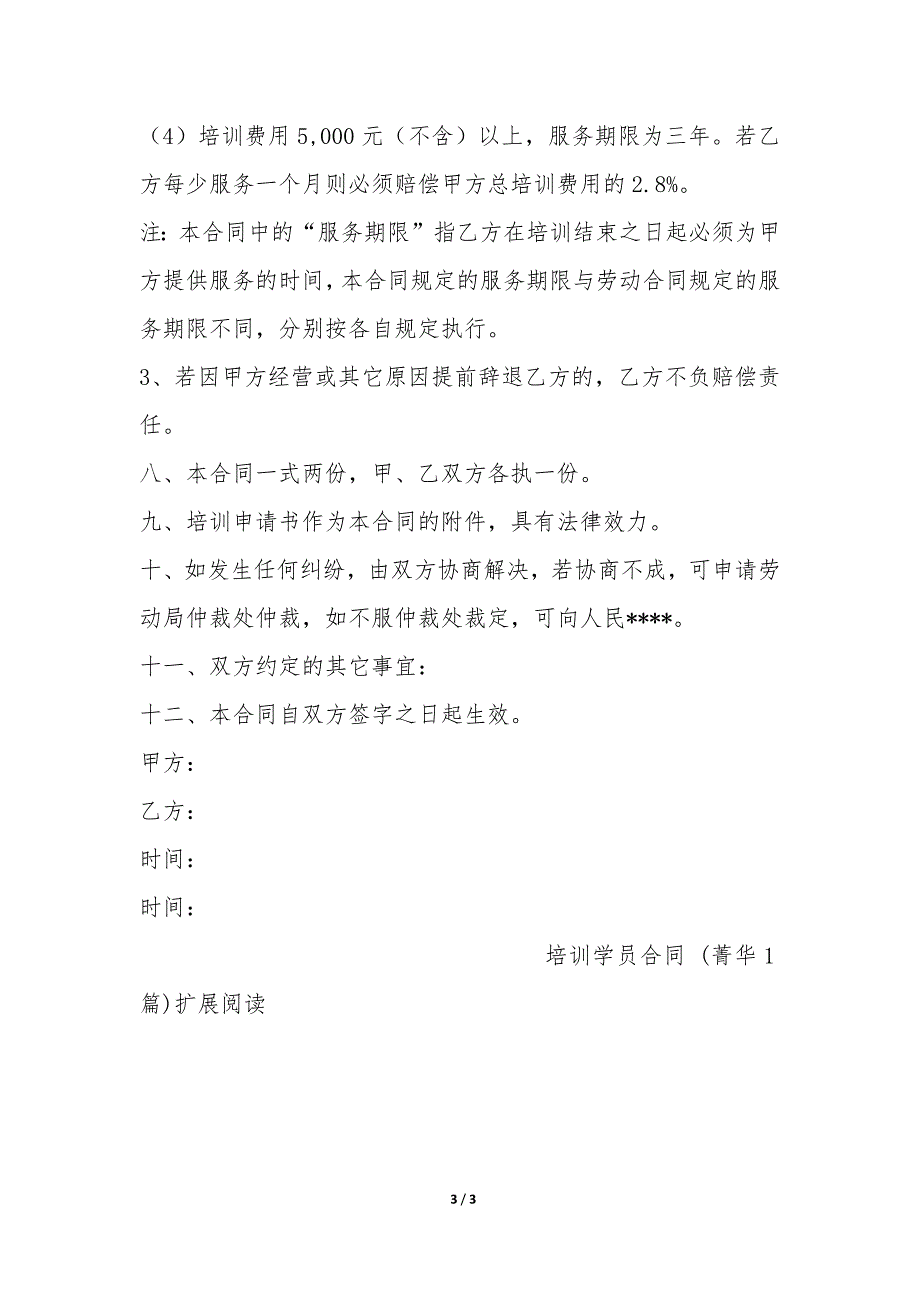 （4）培训费用 5,000 元（不含）以上，服务期限为三年。若乙
方每少服务一个月则必须赔偿甲方总培训费用的 2.8%。
注：本合同中的“服务期限”指乙方在培训结束之日起必须为甲
方提供服务的时间，本合同规定的服务期限与劳动合同规定的服
务期限不同，分别按各自规定执行。
3、若因甲方经营或其它原因提前辞退乙方的，乙方不负赔偿责
任。
八、本合同一式两份，甲、乙双方各执一份。
九、培训申请书作为本合同的附件，具有法律效力。
十、如发生任何纠纷，由双方协商解决，若协商不成，可申请劳
动局仲裁处仲裁，如不服仲裁处裁定，可向人民****。
十一、双方约定的其它事宜：
十二、本合同自双方签字之日起生效。
甲方：
乙方：
时间：
时间：
培训学员合同 (菁华 1
篇)扩展阅读
3 / 3